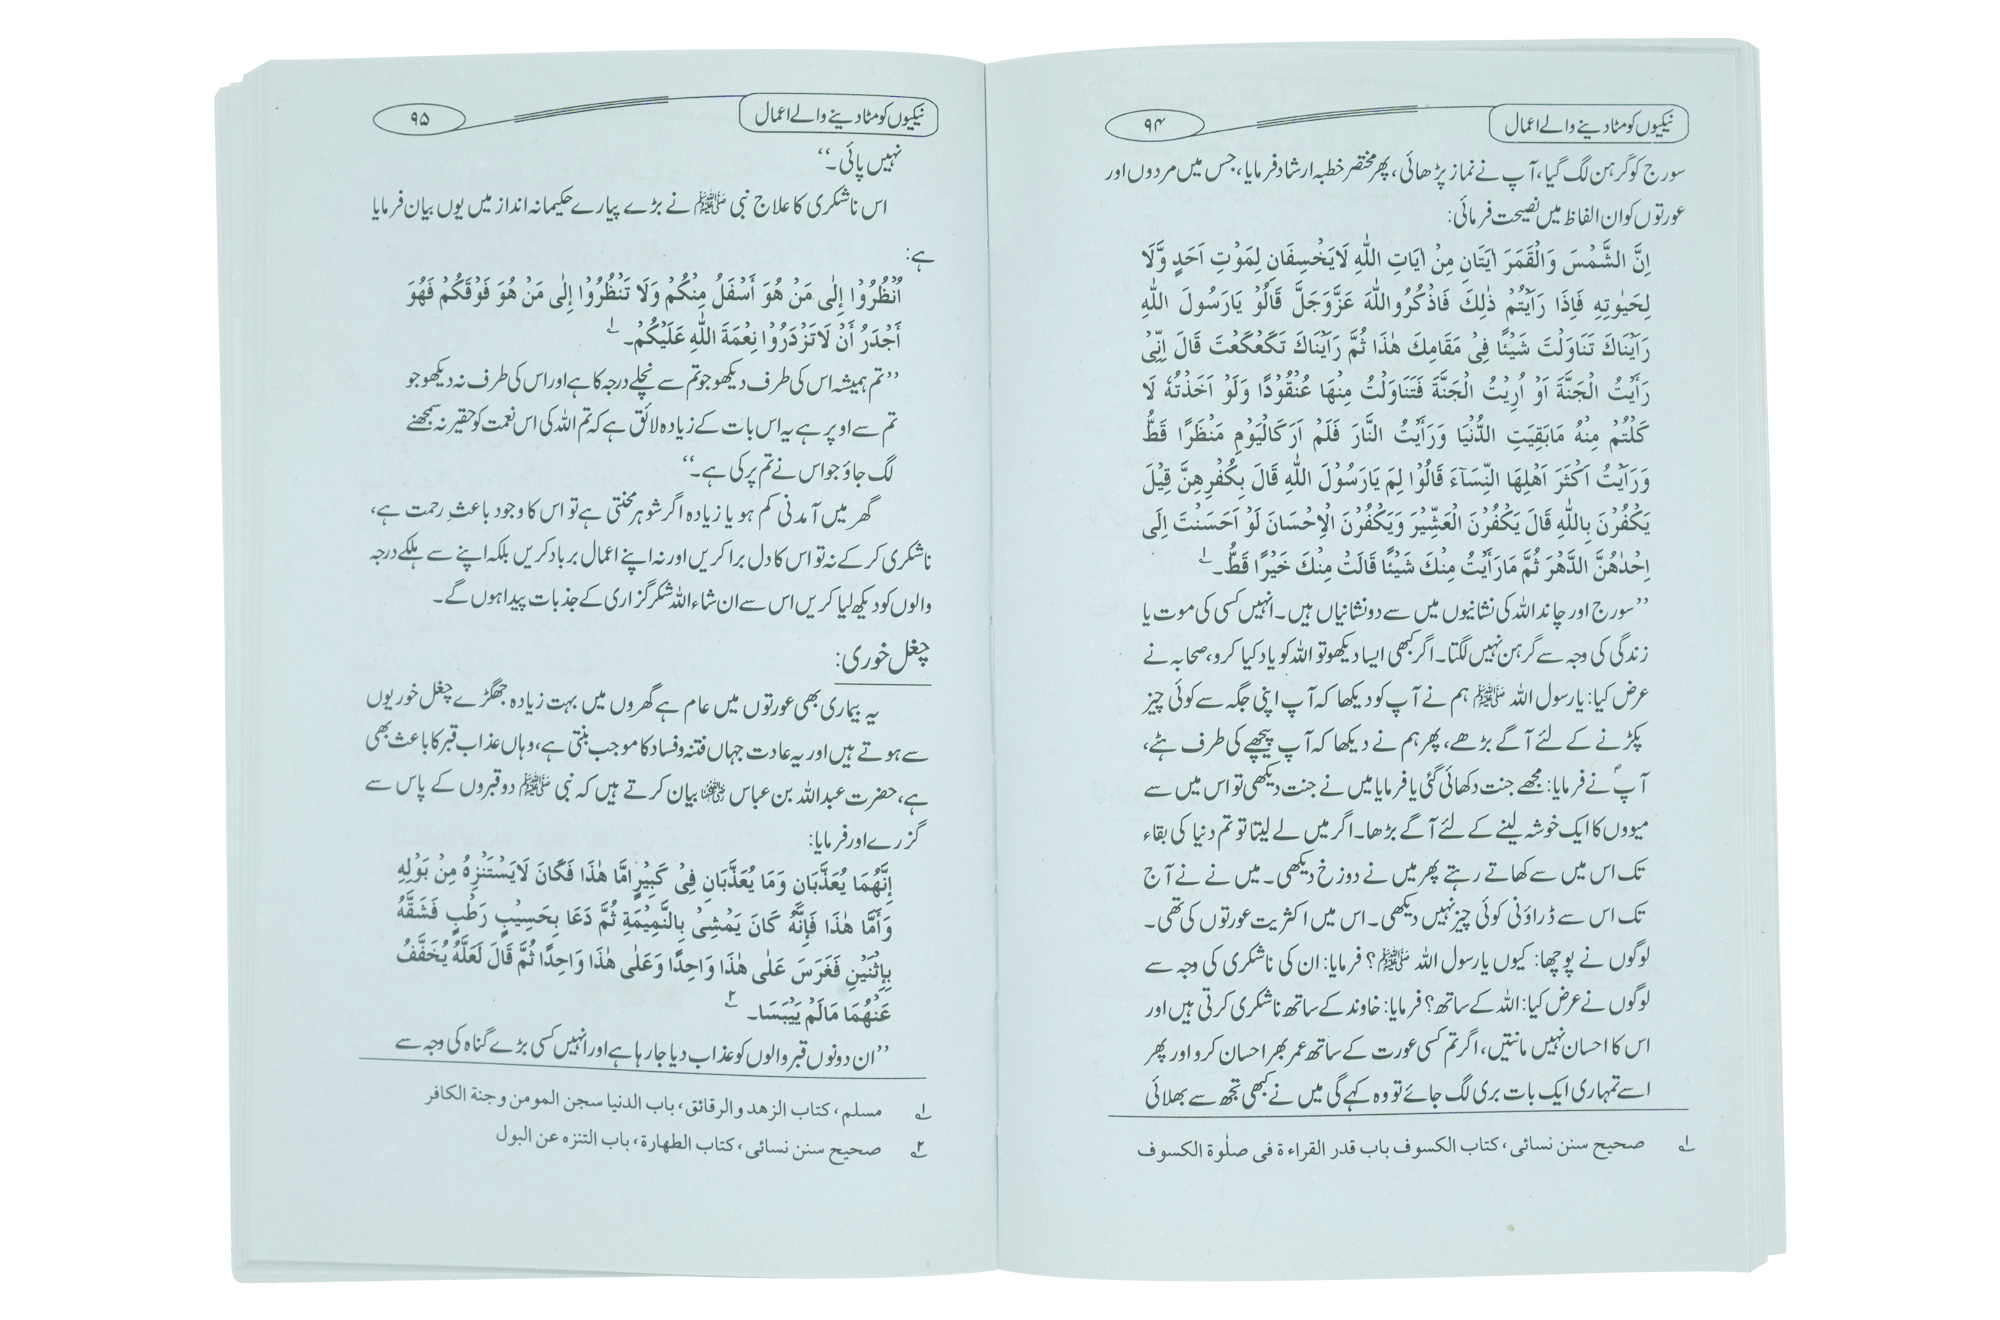 نیکیوں کو مٹا دینے والے اعمال
۹۴
سورج کو گرہن لگ گیا، آپ نے نماز پڑھائی، پھر مختصر خطبہ ارشاد فرمایا، جس میں مردوں اور
عورتوں کو ان الفاظ میں نصیحت فرمائی:
اِنَّ الشَّمْسَ وَالْقَمَرَ اٰيَتَانِ مِنْ اٰيَاتِ اللّٰهِ لَايَخْسِفَانِ لِمَوْتِ اَحَدٍ وَّلَا
لِحَيٰوتِهٖ فَاِذَا رَاَيْتُمْ ذٰلِكَ فَاذْكُرُواللّٰهَ عَزَّوَجَلَّ قَالُوْ يَارَسُولَ اللّٰهِ
رَاَيْنَاكَ تَنَاوَلْتَ شَيْئًا فِيْ مَقَامِكَ هٰذَا ثُمَّ رَاَيْنَاكَ تَكَعْكَعْتَ قَالَ اِنِّيْ
رَاَيْتُ الْجَنَّةَ اَوْ اُرِيْتُ الْجَنَّةَ فَتَنَاوَلْتُ مِنْهَا عُنْقُوْدًا وَلَوْ اَخَذْتُهٗ لَا
كَلْتُمْ مِنْهُ مَابَقِيَتِ الدُّنْيَا وَرَاَيْتُ النَّارَ فَلَمْ اَرَكَالْيَوْمِ مَنْظَرًا قَطُّ
وَرَاَيْتُ اَكْثَرَ اَهْلِهَا النِّسَآءَ قَالُوْا لِمَ يَارَسُوْلَ اللّٰهِ قَالَ بِكُفْرِهِنَّ قِيْلَ
يَكْفُرْنَ بِاللّٰهِ قَالَ يَكْفُرْنَ الْعَشِّيْرَ وَيَكْفُرْنَ الْاِحْسَانَ لَوْ اَحَسَنْتَ اِلَى
اِحْدٰهُنَّ الدَّهْرَ ثُمَّ مَارَأَيْتُ مِنْكَ شَيْئًا قَالَتْ مِنْكَ خَيْرًا قَطُّ۔ ۱؎
’’سورج اور چاند اللہ کی نشانیوں میں سے دو نشانیاں ہیں۔ انہیں کسی کی موت یا
زندگی کی وجہ سے گرہن نہیں لگتا۔ اگر کبھی ایسا دیکھو تو اللہ کو یاد کیا کرو، صحابہ نے
عرض کیا: یارسول اللہ ﷺ ہم نے آپ کو دیکھا کہ آپ اپنی جگہ سے کوئی چیز
پکڑنے کے لئے آگے بڑھے، پھر ہم نے دیکھا کہ آپ پیچھے کی طرف ہٹے،
آپؐ نے فرمایا: مجھے جنت دکھائی گئی یا فرمایا میں نے جنت دیکھی تو اس میں سے
میووں کا ایک خوشہ لینے کے لئے آگے بڑھا۔ اگر میں لے لیتا تو تم دنیا کی بقاء
تک اس میں سے کھاتے رہتے پھر میں نے دوزخ دیکھی۔ میں نے نے آج
تک اس سے ڈراؤنی کوئی چیز نہیں دیکھی۔ اس میں اکثریت عورتوں کی تھی۔
لوگوں نے پوچھا: کیوں یارسول اللہ ﷺ؟ فرمایا: ان کی ناشکری کی وجہ سے
لوگوں نے عرض کیا: اللہ کے ساتھ؟ فرمایا: خاوند کے ساتھ ناشکری کرتی ہیں اور
اس کا احسان نہیں مانتیں، اگر تم کسی عورت کے ساتھ عمر بھر احسان کرو اور پھر
اسے تمہاری ایک بات بری لگ جائے تو وہ کہے گی میں نے کبھی تجھ سے بھلائی
۱؎ صحیح سنن نسائی، کتاب الکسوف باب قدر القراءة فی صلٰوة الکسوف
نیکیوں کو مٹا دینے والے اعمال
۹۵
نہیں پائی۔‘‘
اس ناشکری کا علاج نبی ﷺ نے بڑے پیارے حکیمانہ انداز میں یوں بیان فرمایا
ہے:
اُنْظُرُوْا إِلٰى مَنْ هُوَ أَسْفَلُ مِنْكُمْ وَلَا تَنْظُرُوْا إِلٰى مَنْ هُوَ فَوْقَكُمْ فَهُوَ
أَجْدَرُ أَنْ لَاتَزْدَرُوْا نِعْمَةَ اللّٰهِ عَلَيْكُمْ۔ ۱؎
’’تم ہمیشہ اس کی طرف دیکھو جو تم سے نچلے درجہ کا ہے اور اس کی طرف نہ دیکھو جو
تم سے اوپر ہے یہ اس بات کے زیادہ لائق ہے کہ تم اللہ کی اس نعمت کو حقیر نہ سمجھنے
لگ جاؤ جو اس نے تم پر کی ہے۔‘‘
گھر میں آمدنی کم ہو یا زیادہ اگر شوہر محنتی ہے تو اس کا وجود باعثِ رحمت ہے،
ناشکری کر کے نہ تو اس کا دل برا کریں اور نہ اپنے اعمال برباد کریں بلکہ اپنے سے ہلکے درجہ
والوں کو دیکھ لیا کریں اس سے ان شاء اللہ شکر گزاری کے جذبات پیدا ہوں گے۔
چغل خوری:
یہ بیماری بھی عورتوں میں عام ہے گھروں میں بہت زیادہ جھگڑے چغل خوریوں
سے ہوتے ہیں اور یہ عادت جہاں فتنہ وفساد کا موجب بنتی ہے، وہاں عذاب قبر کا باعث بھی
ہے، حضرت عبداللہ بن عباس رضی اللہ عنہما بیان کرتے ہیں کہ نبی ﷺ دو قبروں کے پاس سے
گزرے اور فرمایا:
إِنَّهُمَا يُعَذَّبَانِ وَمَا يُعَذَّبَانِ فِيْ كَبِيْرٍ اِمَّا هٰذَا فَكَانَ لَايَسْتَنْزِهُ مِنْ بَوْلِهِ
وَأَمَّا هٰذَا فَإِنَّهُ كَانَ يَمْشِيْ بِالنَّمِيْمَةِ ثُمَّ دَعَا بِحَسِيْبٍ رَطْبٍ فَشَقَّهُ
بِإِثْنَيْنِ فَغَرَسَ عَلٰى هٰذَا وَاحِدًا وَعَلٰى هٰذَا وَاحِدًا ثُمَّ قَالَ لَعَلَّهُ يُخَفَّفُ
عَنْهُمَا مَالَمْ يَيْبَسَا۔ ۲؎
’’ان دونوں قبر والوں کو عذاب دیا جا رہا ہے اور انہیں کسی بڑے گناہ کی وجہ سے
۱؎ مسلم، کتاب الزهد والرقائق، باب الدنیا سجن المومن وجنة الکافر
۲؎ صحیح سنن نسائی، کتاب الطهارة، باب التنزه عن البول